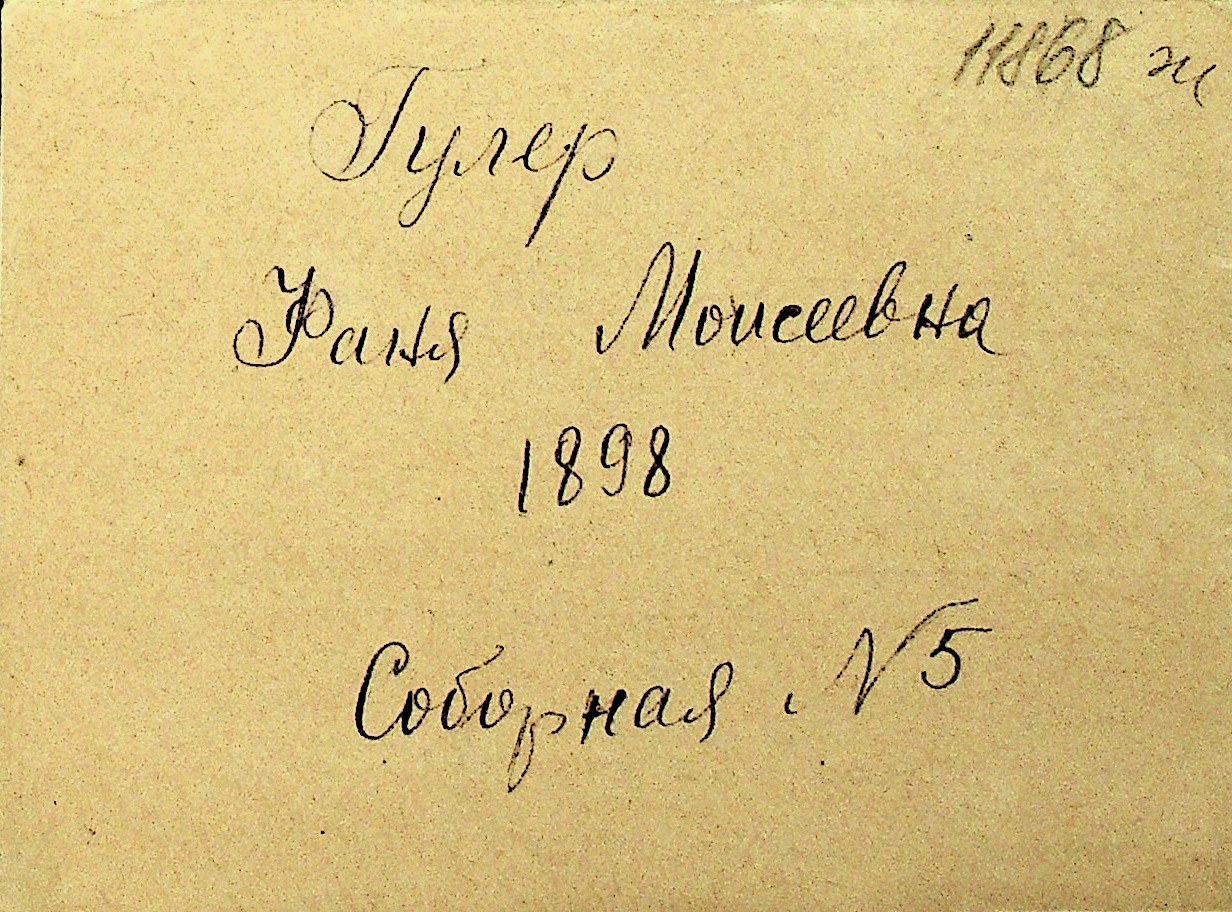 11868 ж
Гулер
Фаня Моисеевна
1898
Соборная, № 5